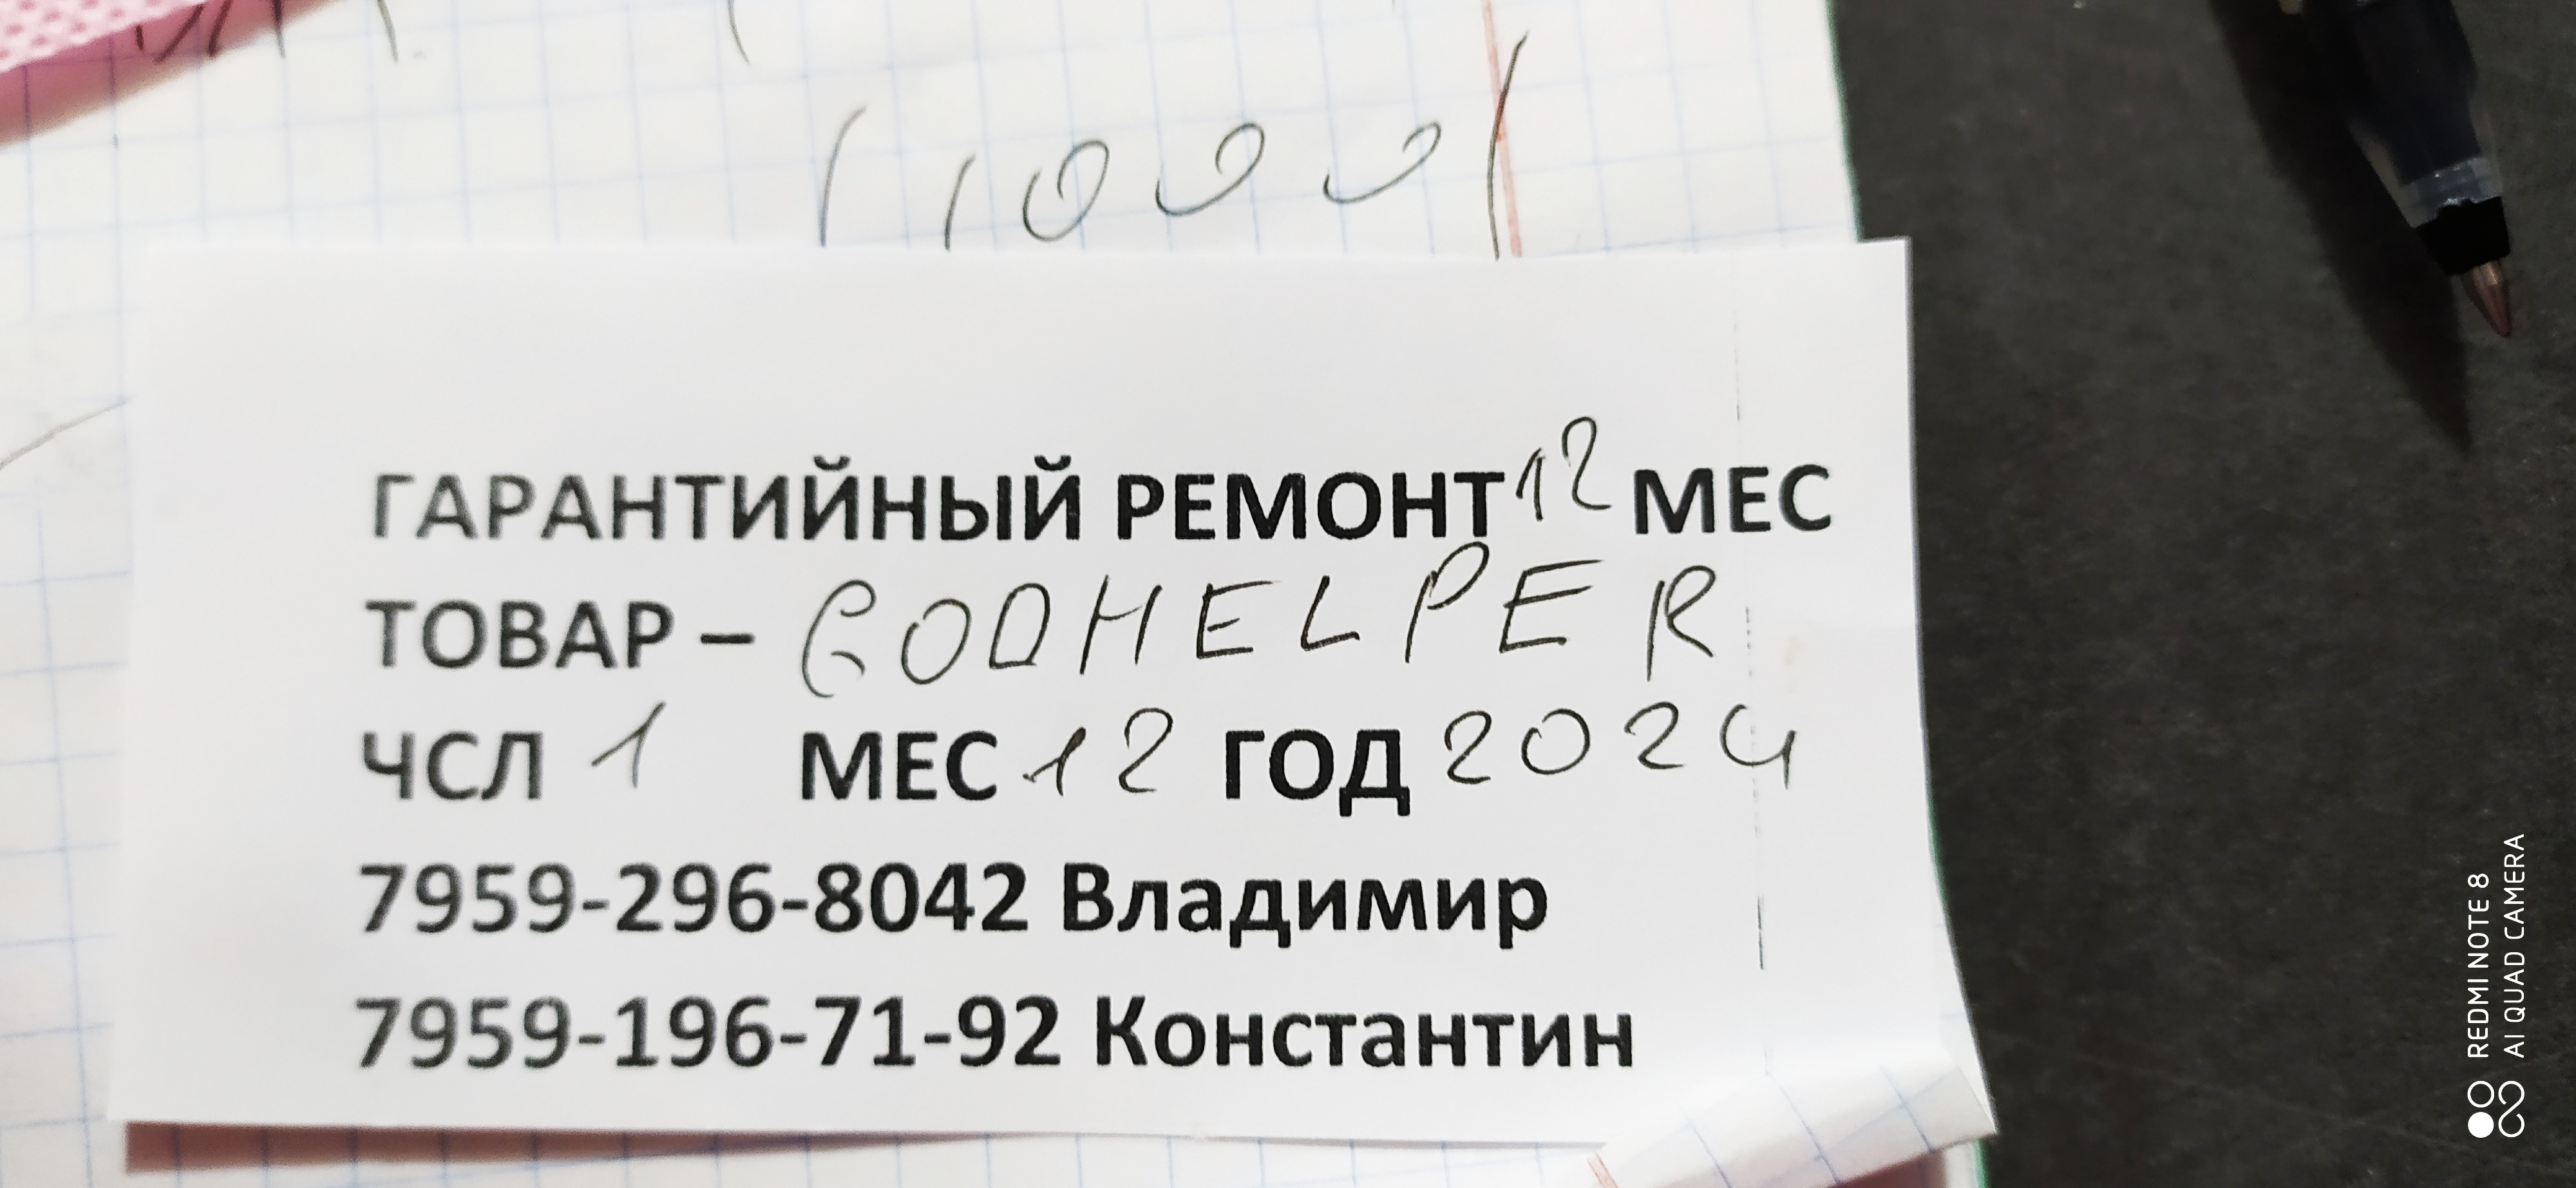 (1000)
ГАРАНТИЙНЫЙ РЕМОНТ 12 МЕС
ТОВАР – GODHELPER
ЧСЛ 1 МЕС 12 ГОД 2024
7959-296-8042 Владимир
7959-196-71-92 Константин
REDMI NOTE 8
AI QUAD CAMERA